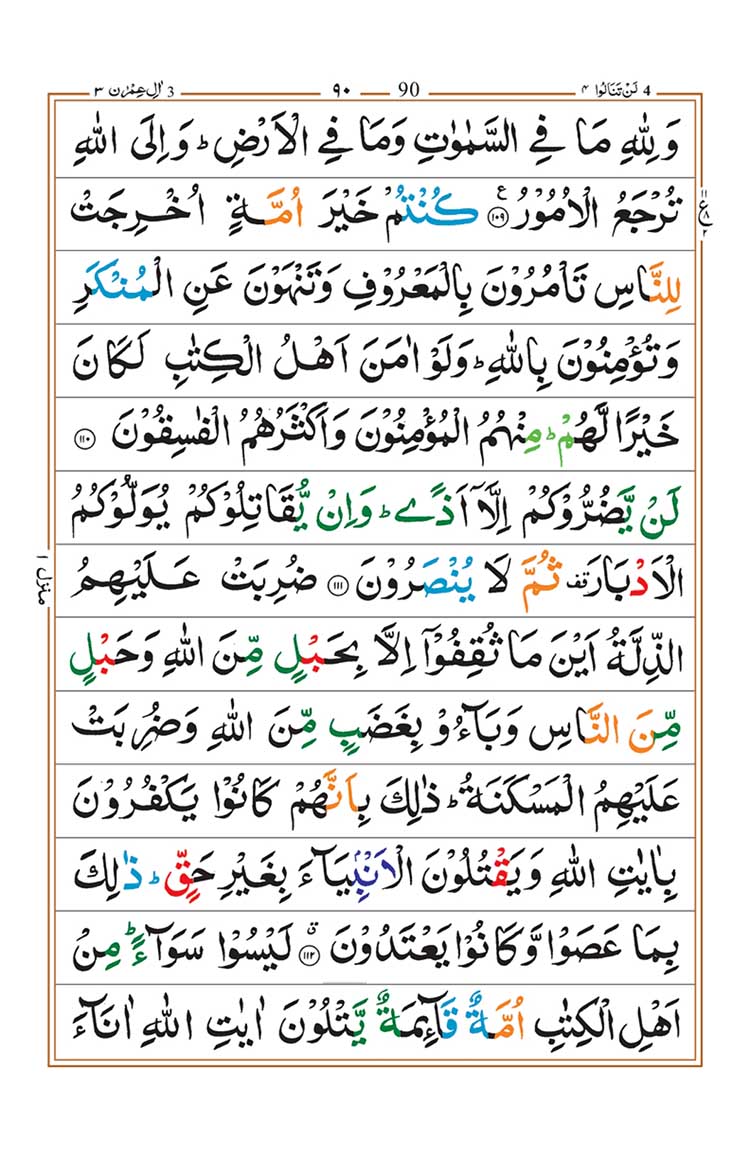 لَنْ تَنَالُوْا ۴ 4
90 ٩٠
اٰلِ عِمْرٰن ٣ 3
وَ لِلّٰهِ مَا فِي السَّمٰوٰتِ وَمَا فِي الْاَرْضِ ؕ وَ اِلَى اللّٰهِ
تُرْجَعُ الْاُمُوْرُ ۧ ﴿۱۰۹﴾ كُنْتُمْ خَيْرَ اُمَّةٍ اُخْرِجَتْ
لِلنَّاسِ تَاْمُرُوْنَ بِالْمَعْرُوْفِ وَتَنْهَوْنَ عَنِ الْمُنْكَرِ
وَتُؤْمِنُوْنَ بِاللّٰهِ ؕ وَلَوْ اٰمَنَ اَهْلُ الْكِتٰبِ لَكَانَ
خَيْرًا لَّهُمْ ؕ مِنْهُمُ الْمُؤْمِنُوْنَ وَاَكْثَرُهُمُ الْفٰسِقُوْنَ ﴿۱۱۰﴾
لَنْ يَّضُرُّوْكُمْ اِلَّاۤ اَذًى ؕ وَاِنْ يُّقَاتِلُوْكُمْ يُوَلُّوْكُمُ
الْاَدْبَارَ ࣞ ثُمَّ لَا يُنْصَرُوْنَ ﴿۱۱۱﴾ ضُرِبَتْ عَلَيْهِمُ
الذِّلَّةُ اَيْنَ مَا ثُقِفُوْۤا اِلَّا بِحَبْلٍ مِّنَ اللّٰهِ وَحَبْلٍ
مِّنَ النَّاسِ وَبَآءُوْ بِغَضَبٍ مِّنَ اللّٰهِ وَضُرِبَتْ
عَلَيْهِمُ الْمَسْكَنَةُ ؕ ذٰلِكَ بِاَنَّهُمْ كَانُوْا يَكْفُرُوْنَ
بِاٰيٰتِ اللّٰهِ وَيَقْتُلُوْنَ الْاَنْۢبِيَآءَ بِغَيْرِ حَقٍّ ؕ ذٰلِكَ
بِمَا عَصَوْا وَّكَانُوْا يَعْتَدُوْنَ ۗ ﴿۱۱۲﴾ لَيْسُوْا سَوَآءً ؕ مِنْ
اَهْلِ الْكِتٰبِ اُمَّةٌ قَآئِمَةٌ يَّتْلُوْنَ اٰيٰتِ اللّٰهِ اٰنَآءَ
منزل ۱